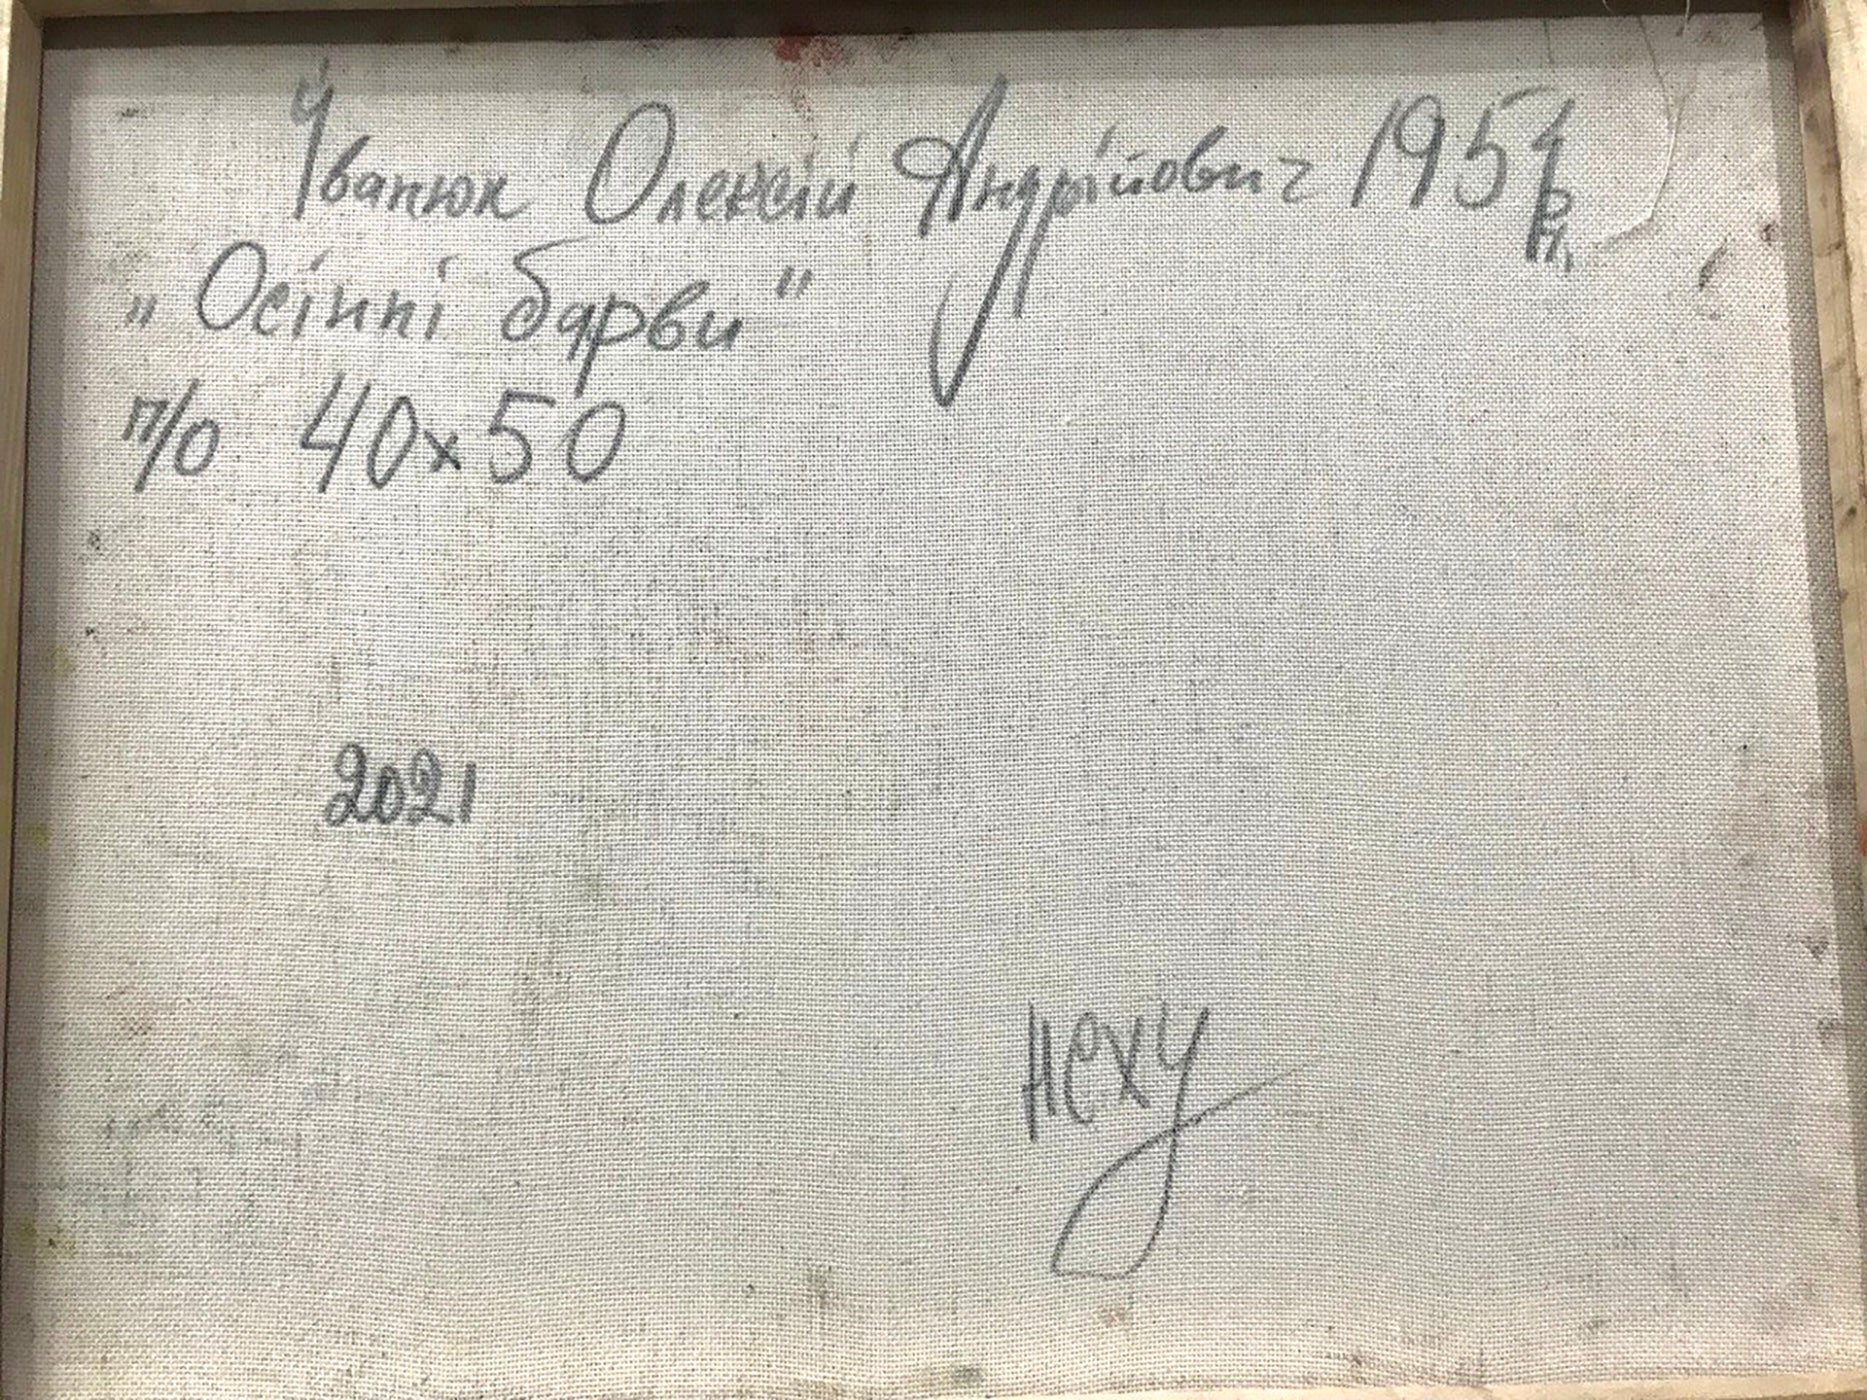 Іванюк Олексій Андрійович 1954
р.н.
„Осінні барви"
п/о 40х50
2021
НСХУ